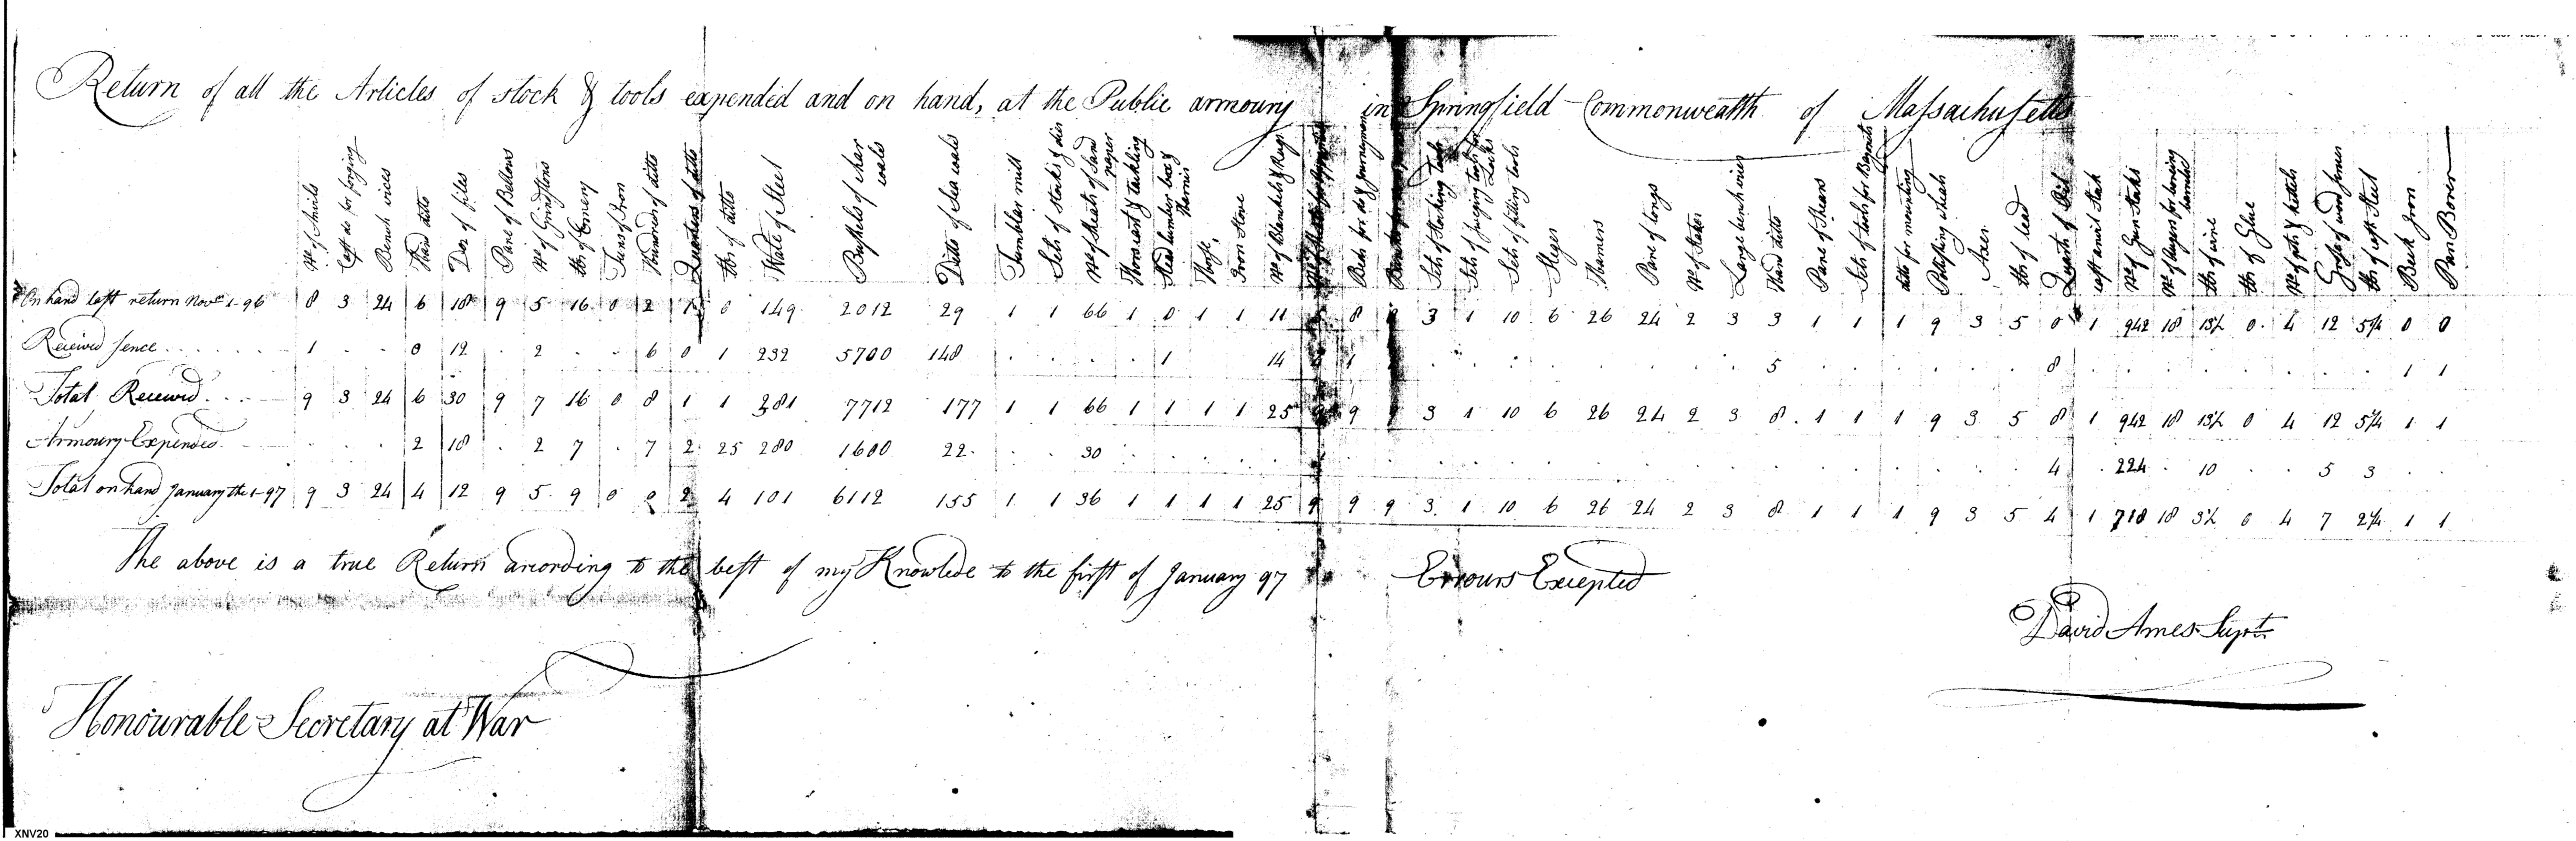 Return of all the Articles of stock & tools expended and on hand, at the Public armoury in Springfield Commonwealth of Massachusetts
No of Anvils
Cast do for forging
Bench vices
Hand ditto
Doz of files
Pare of Bellows
No of Grindstons
lbs of Emery
Tuns of Iron
Hundreds of ditto
Quarters of ditto
lbs of ditto
Wate of Steel
Bushels of char coals
Ditto of Sea coals
Tumbler mill
Sets of Stocks & dies
No of Sheets of Sand paper
Horse cart & tackling
Sled lumber box & Harnis
Horse
Iron Stove
No of Blankets & Rugs
Beds for do & journeymen
Sets of Stocking tools
Sets of forging tools for Locks
Sets of filling tools
Sleges
Hamers
Pare of tongs
No of Stakes
Large bench vices
Hand ditto
Pare of Shears
Sets of tools for Bayonets
ditto for mounting
Polishing wheels
Axes
lbs of lead
Quarts of Oil
cast anvil Stack
No of Gun Stocks
No of Augers for boring barrels
lbs of wire
lbs of Glue
No of pots & kettels
Groce of wood screws
lbs of cast Steel
Beek Iron
Pan Borer
On hand last return Novr 1-96 8 3 24 6 18 9 5 16 0 2 1 0 149 2012 29 1 1 66 1 0 1 1 11 8 3 1 10 6 26 24 2 3 3 1 1 1 9 3 5 0 1 942 18 13½ 0 4 12 5¼ 0 0
Received sence 1 0 12 2 6 0 1 232 5700 148 1 14 1 5 8 1 1
Total Received 9 3 24 6 30 9 7 16 0 8 1 1 381 7712 177 1 1 66 1 1 1 1 25 9 9 3 1 10 6 26 24 2 3 8 1 1 1 9 3 5 8 1 942 18 13½ 0 4 12 5¼ 1 1
Armoury Expended 2 18 2 7 7 2 25 280 1600 22 30 4 224 10 5 3
Total on hand January the 1-97 9 3 24 4 12 9 5 9 0 0 2 4 101 6112 155 1 1 36 1 1 1 1 25 9 9 9 3 1 10 6 26 24 2 3 8 1 1 1 9 3 5 4 1 718 18 3½ 0 4 7 2¼ 1 1
The above is a true Return acording to the best of my Knowlede to the first of January 97 Errours Excepted
David Ames Supt
Honourable Secretary at War
XNV20